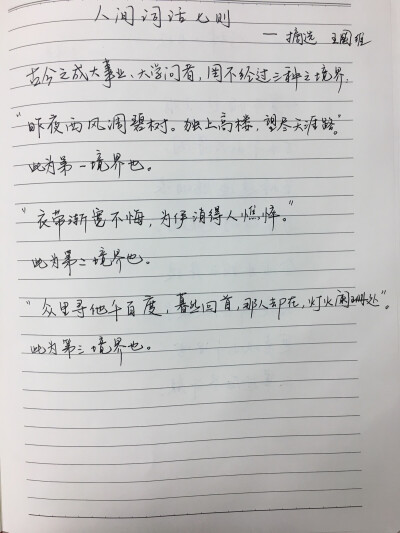 人间词话七则
— 摘选 王国维
古今之成大事业、大学问者,罔不经过三种之境界.
"昨夜西风凋碧树。独上高楼,望尽天涯路。"
此为第一境界也。
"衣带渐宽不悔,为伊消得人憔悴。"
此为第二境界也。
"众里寻他千百度,蓦然回首,那人却在,灯火阑珊处"。
此为第三境界也。